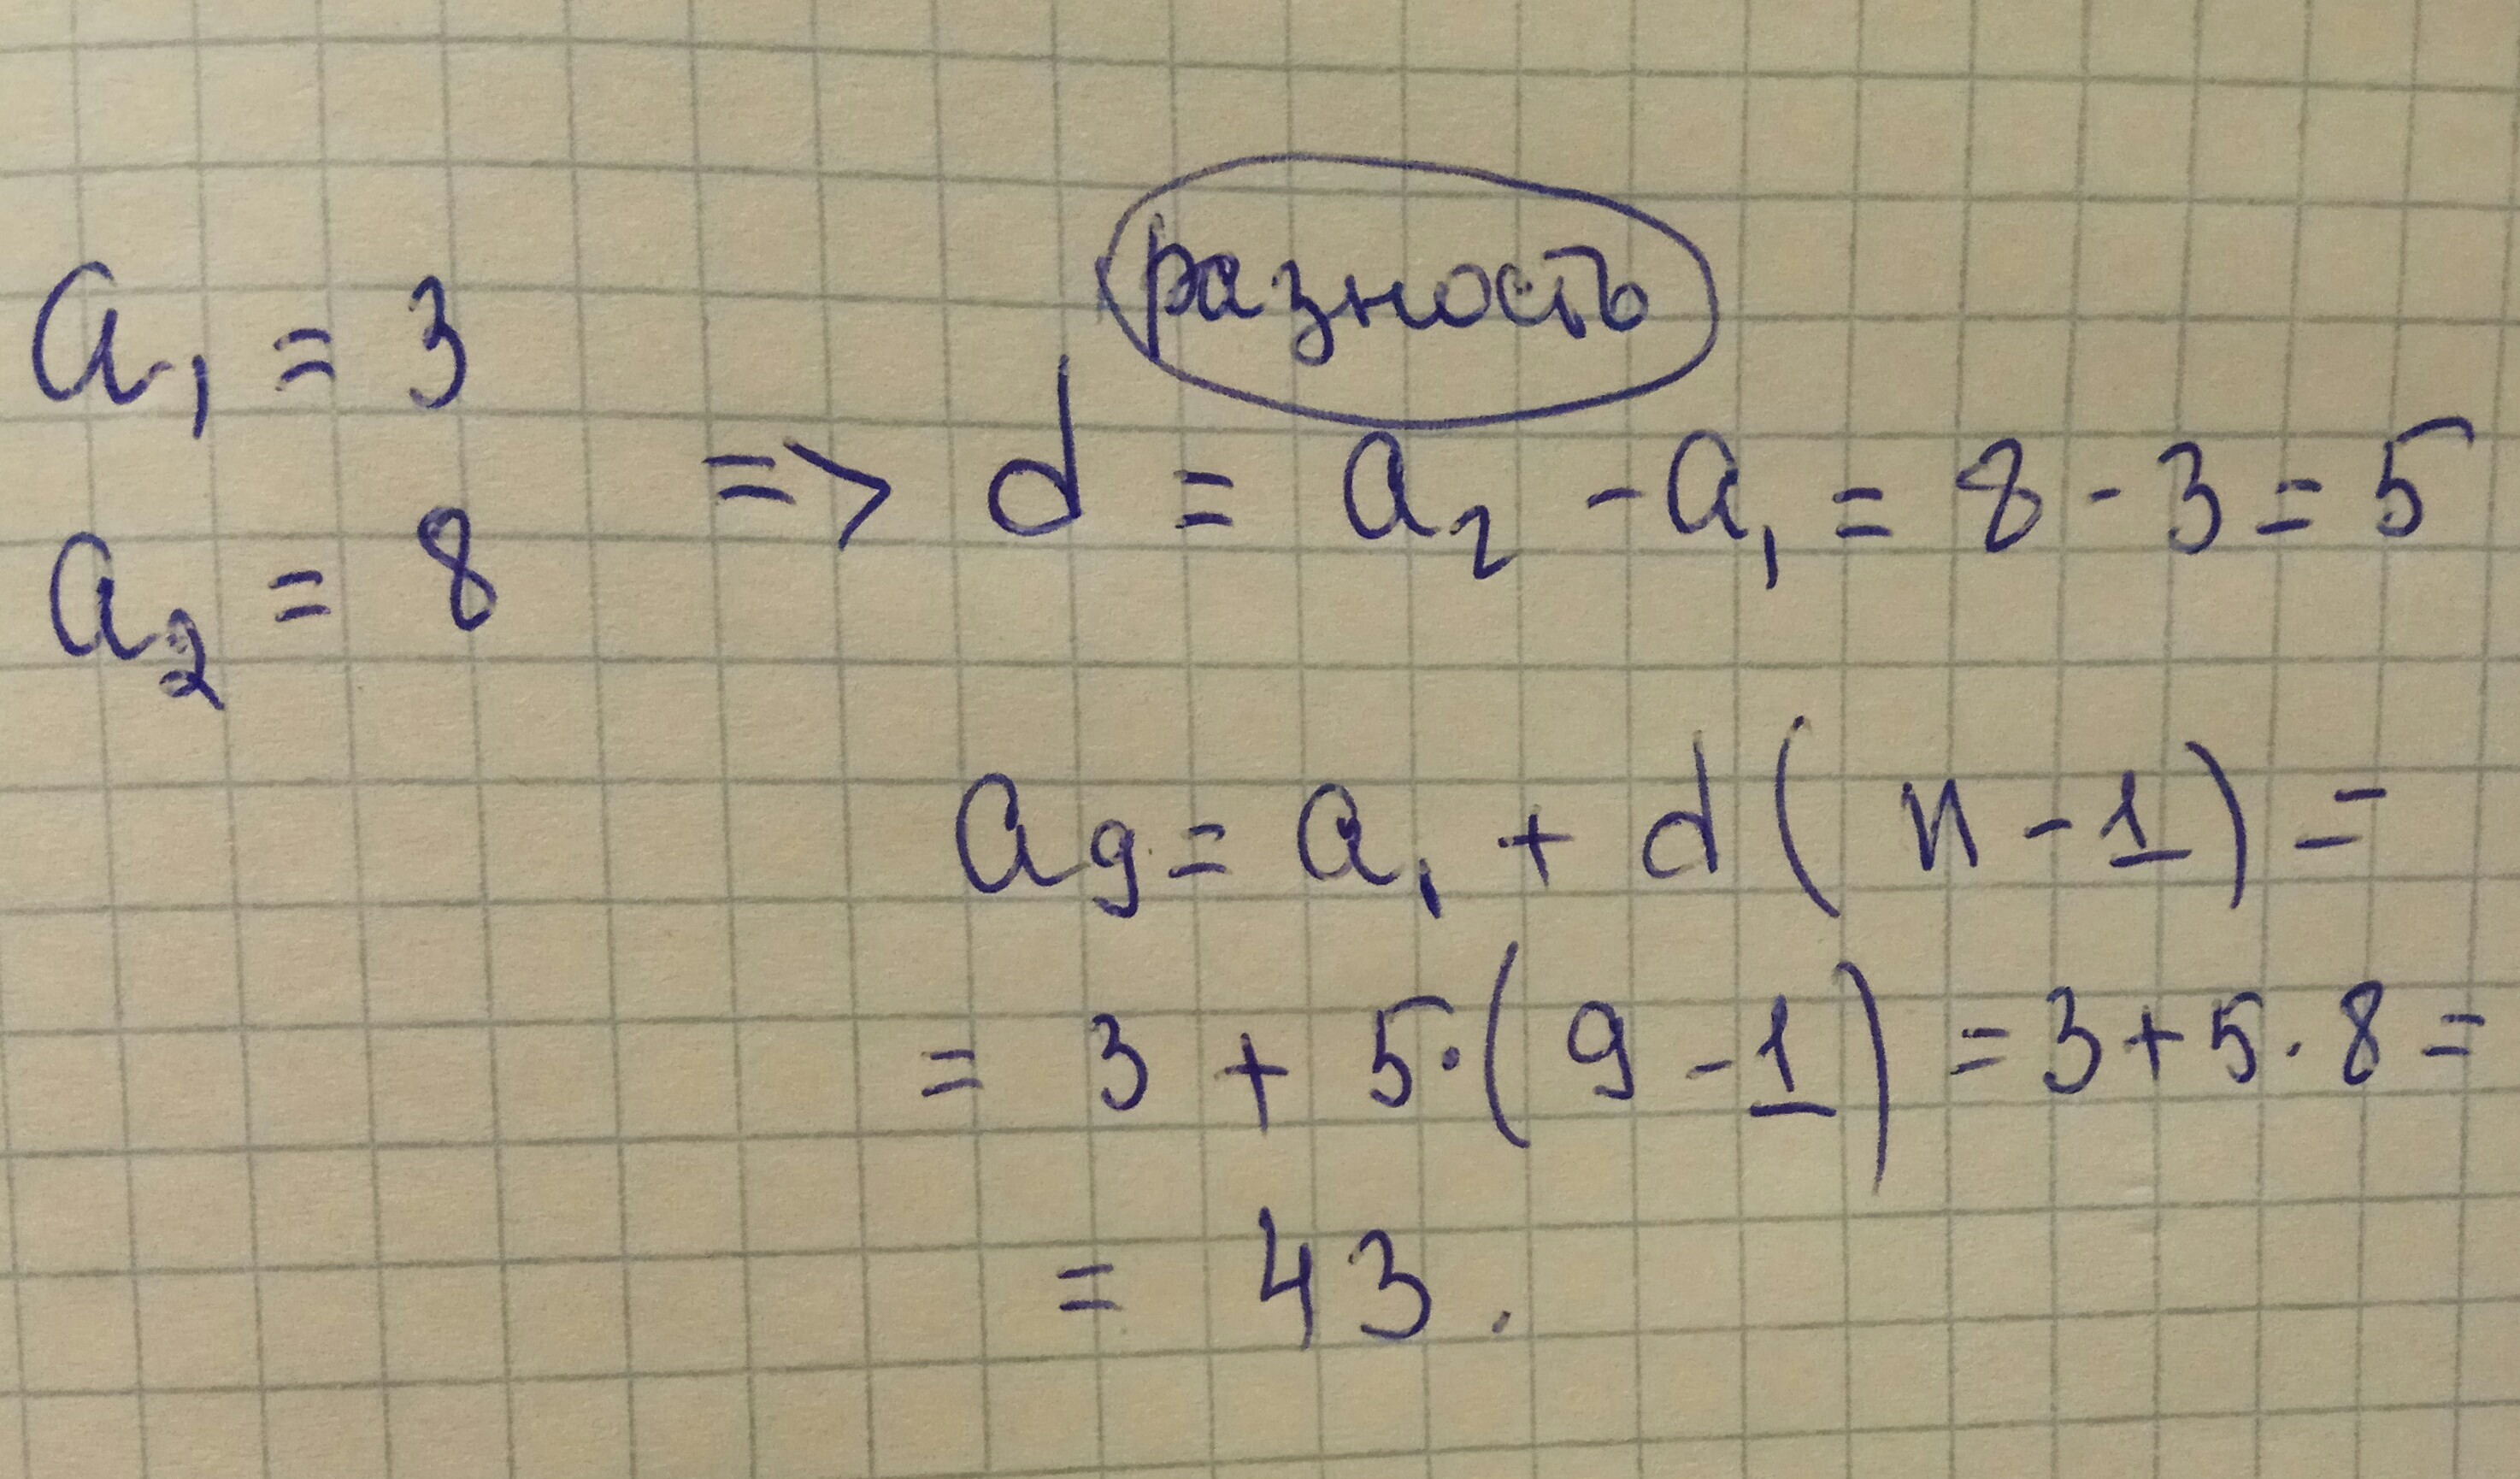 a₁ = 3
разность
a₂ = 8
=> d = a₂ - a₁ = 8 - 3 = 5
a₉ = a₁ + d ( n - 1 ) =
= 3 + 5 · ( 9 - 1 ) = 3 + 5 · 8 =
= 43 .